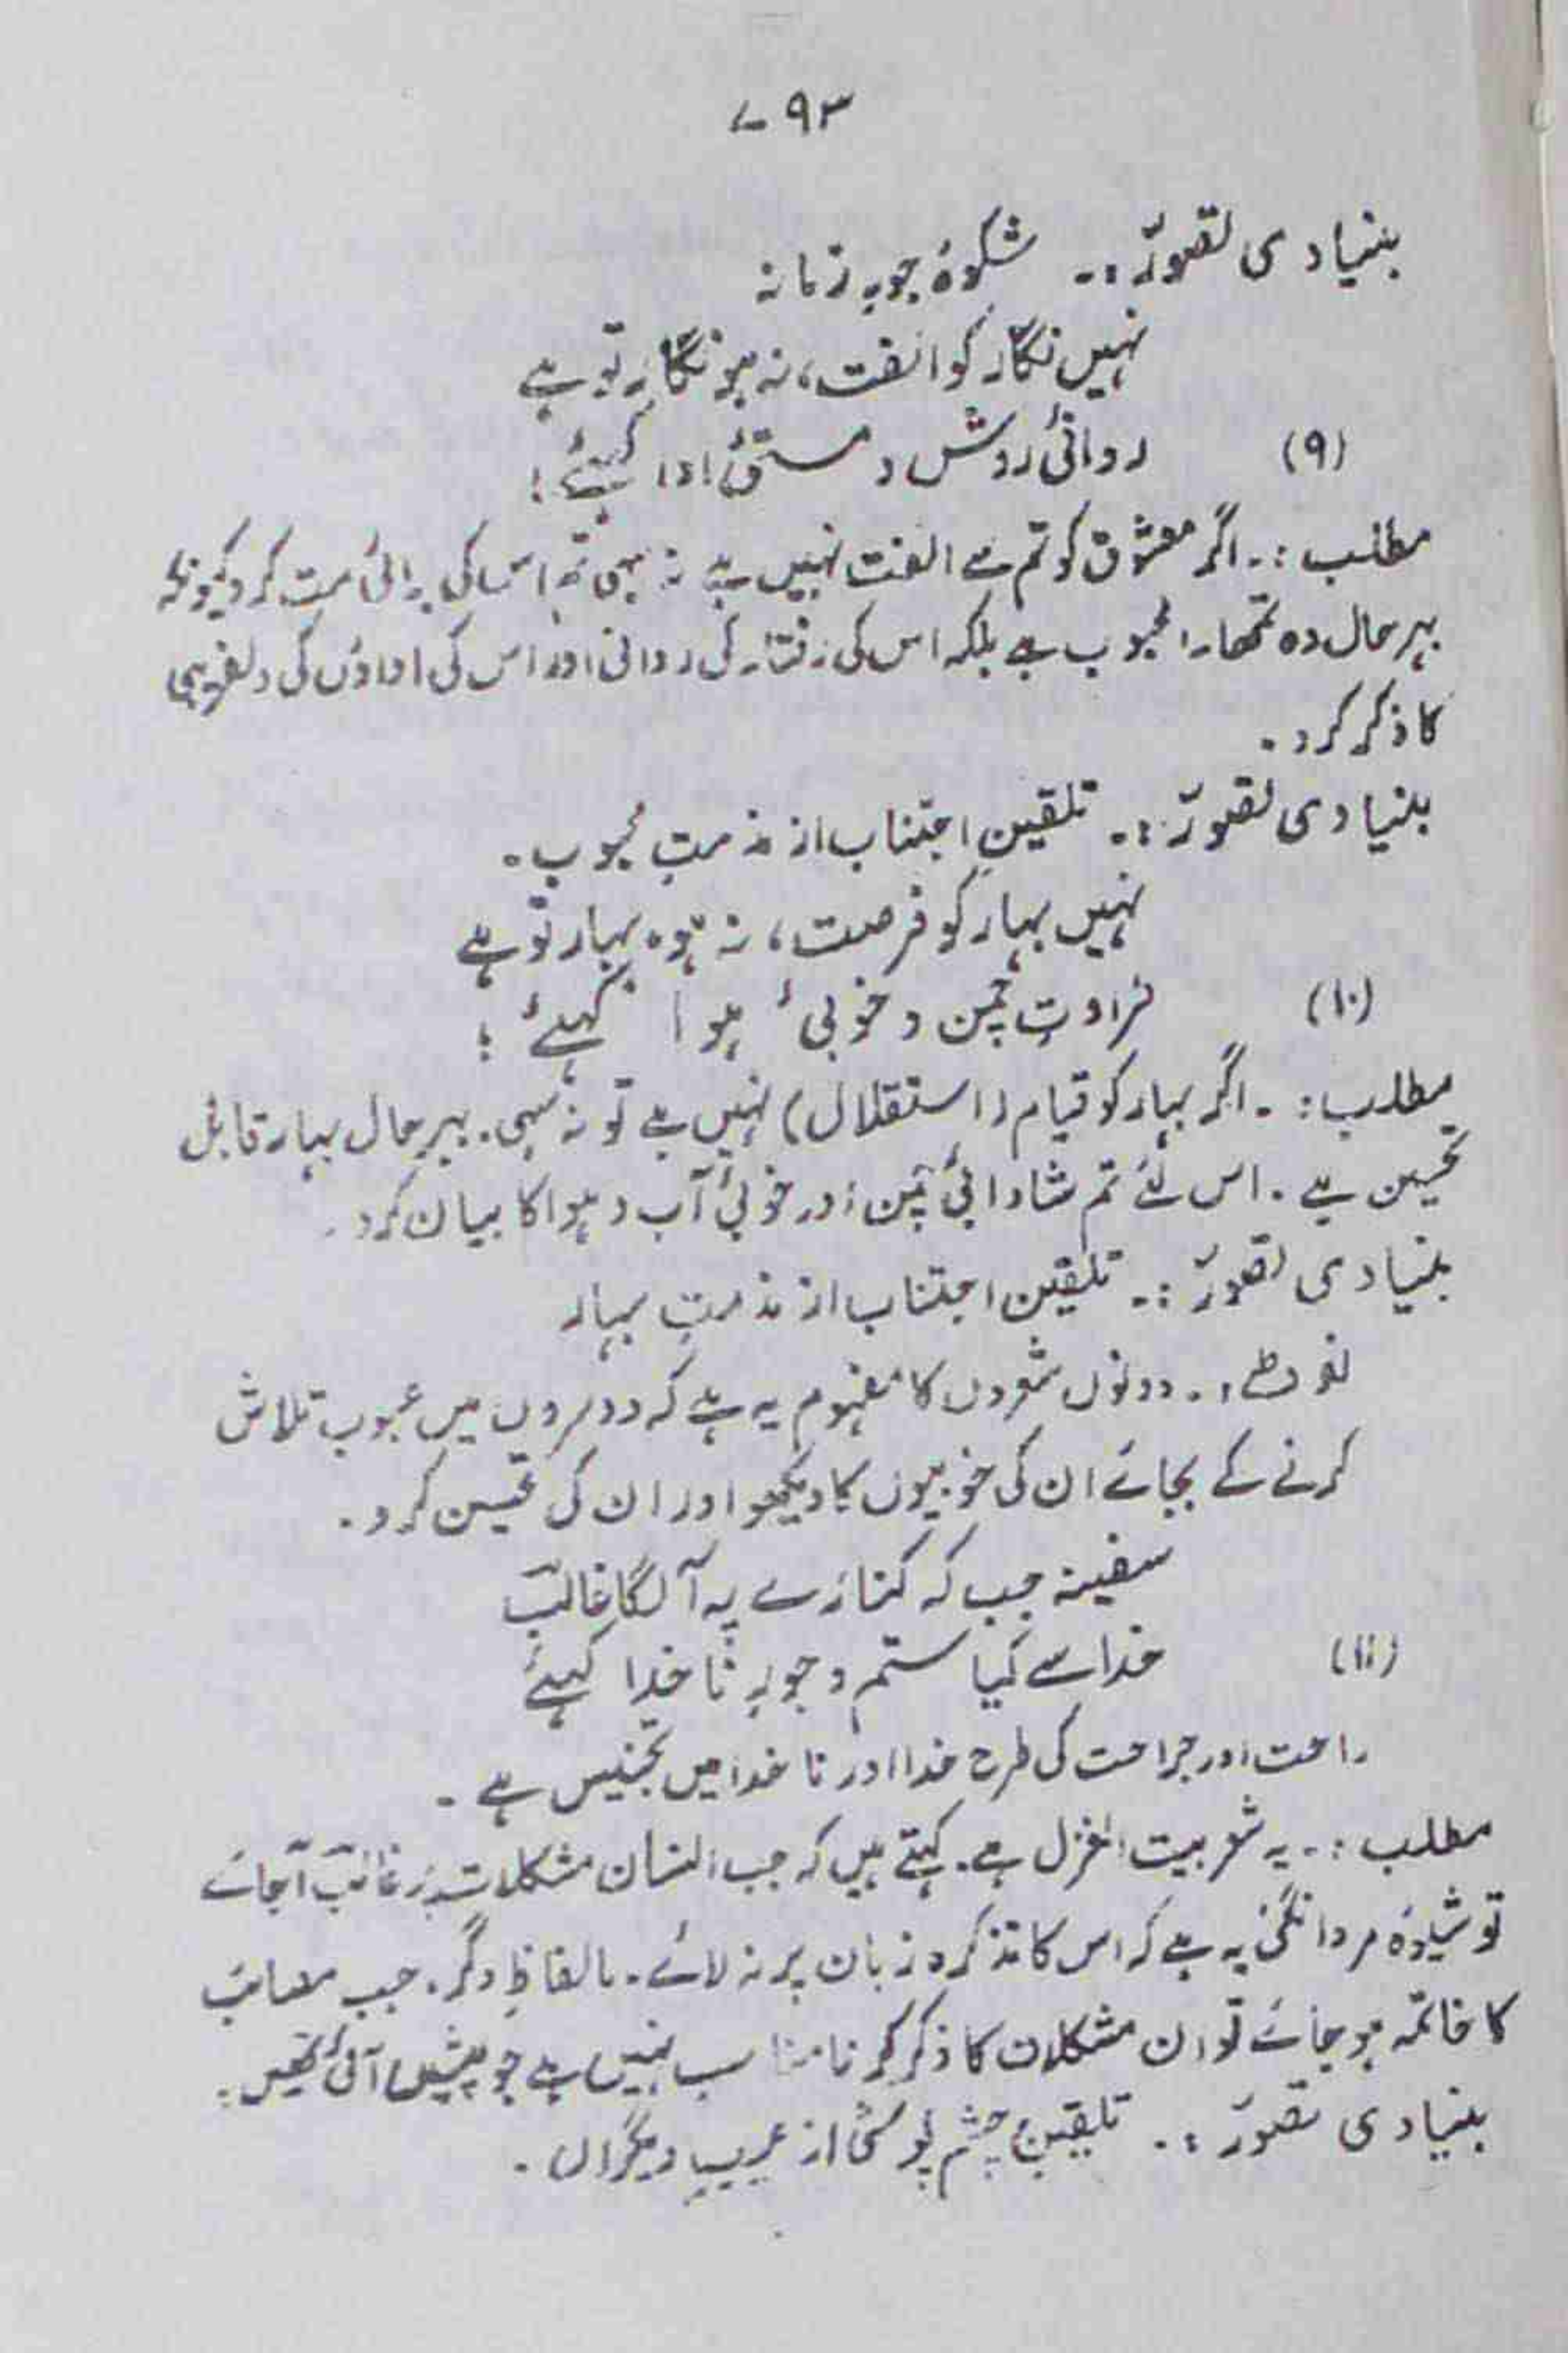 ۷۹۳
بنیادی تصوّر :۔ شکوۂ جورِ زمانہ
نہیں نگار کو الفت، نہ ہو نگار تو ہے
(۹) روانیٔ روش و مستیٔ ادا کہیئے!
مطلب :۔ اگر معشوق کو تم سے الفت نہیں ہے نہ سہی تم اس کی برائی مت کرو کیونکہ
بہرحال وہ تمھارا محبوب ہے بلکہ اس کی رفتار کی روانی اور اس کی اداؤں کی دلفریبی
کا ذکر کرو۔
بنیادی تصوّر :۔ تلقینِ اجتناب از مذمتِ محبوب۔
نہیں بہار کو فرصت، نہ ہو بہار تو ہے
(۱۰) طراوتِ چمن و خوبیٔ ہوا کہیئے!
مطلب :۔ اگر بہار کو قیام (استقلال) نہیں ہے تو نہ سہی۔ بہرحال بہار قابل
تحسین ہے۔ اس لئے تم شادابیٔ چمن اور خوبیٔ آب و ہوا کا بیان کرو۔
بنیادی تصوّر :۔ تلقین اجتناب از مذمتِ بہار
نوٹ :۔ دونوں شعروں کا مفہوم یہ ہے کہ دوسروں میں عیوب تلاش
کرنے کے بجائے ان کی خوبیوں کا دیکھو اور ان کی تحسین کرو۔
سفینہ جب کہ کنارے پہ آ لگا غالبؔ
(۱۱) خدا سے کیا ستم و جورِ ناخدا کہیئے
راحت اور جراحت کی طرح خدا اور ناخدا میں تجنیس ہے۔
مطلب :۔ یہ شعر بیت الغزل ہے۔ کہتے ہیں کہ جب انسان مشکلات پر غالب آجائے
تو شیوۂ مردانگی یہ ہے کہ اس کا تذکرہ زبان پر نہ لائے۔ بالفاظِ دگر۔ جب مصائب
کا خاتمہ ہو جائے تو ان مشکلات کا ذکر کرنا مناسب نہیں ہے جو پیش آئی تھیں۔
بنیادی تصوّر :۔ تلقینِ چشم پوشی از عیبِ دیگراں۔